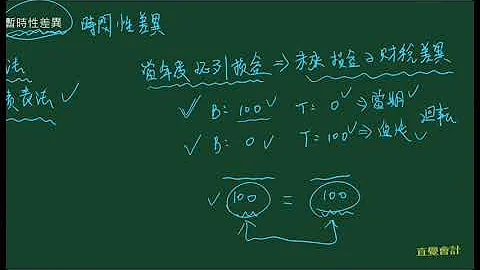 暫時性差異 時間性差異
法
當年度認列損益 ⇒ 未來損益之財稅差異
債表法 ✓
✓ B: 100 ✓ T= 0 ✓ ⇒ 當期 ✓
迴転
✓ B: 0 ✓ T: 100 ✓ ⇒ ✓
✓ 100 = 100
直覺會計